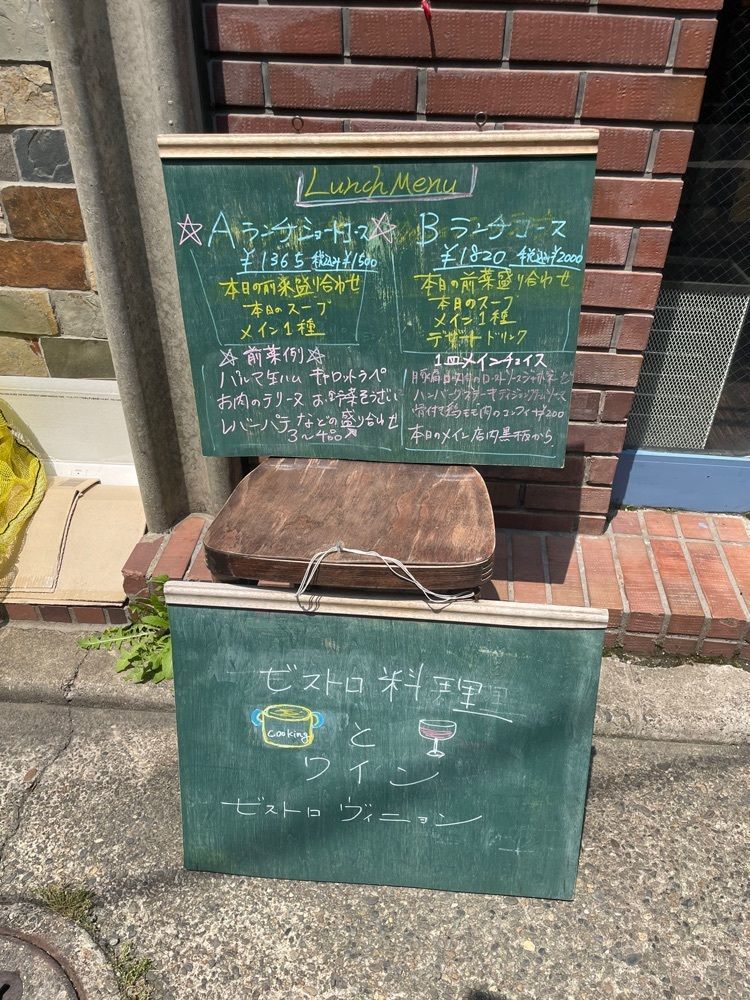 Lunch Menu
☆Aランチショートコース☆
¥1365 税込み¥1500
本日の前菜盛り合わせ
本日のスープ
メイン1種
☆前菜例☆
パルマ生ハム キャロットラペ
お肉のテリーヌ お野菜
レバーパテ などの盛り合わせ
3〜4品
Bランチコース
¥1820 税込み¥2000
本日の前菜盛り合わせ
本日のスープ
メイン1種
デザート ドリンク
1皿メインチョイス
豚肩ロース肉のロースト
ハンバーグステーキ
骨付き鶏モモ肉のコンフィ +¥200
本日のメイン 店内黒板から
ビストロ 料理
cooking
と
ワイン
ビストロ ヴィニョン